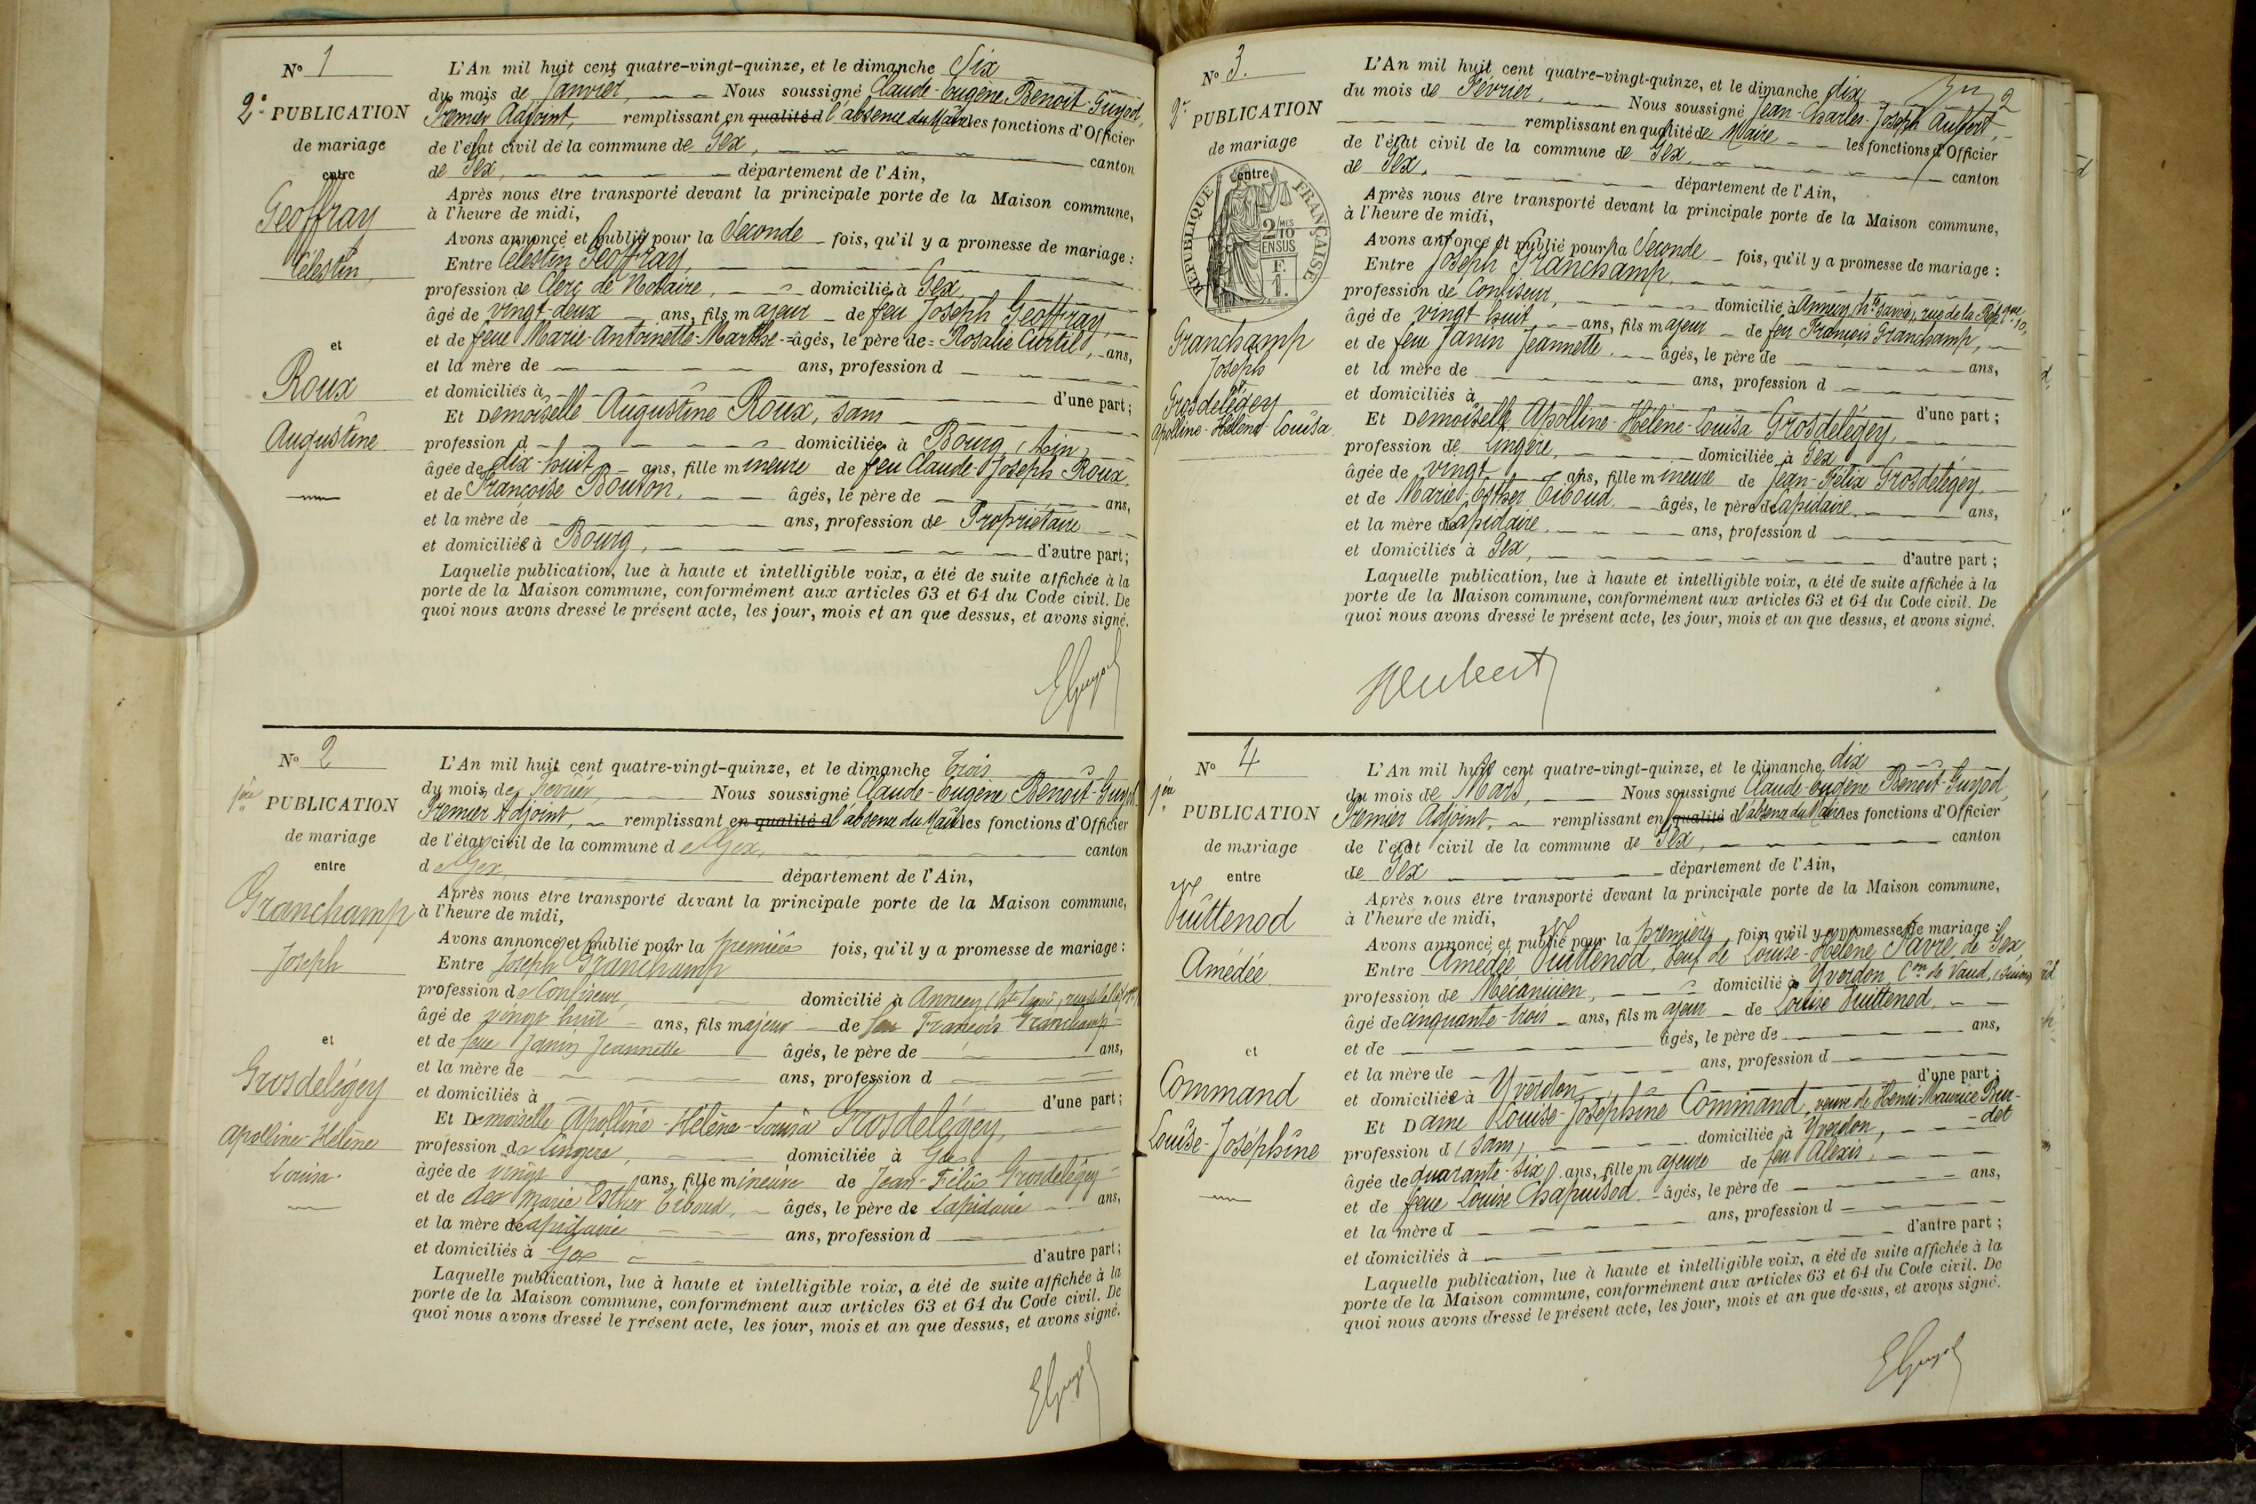 N° 1
2e PUBLICATION
de mariage
entre
Geoffray
Célestin,
et
Roux
Augustine
L'An mil huit cent quatre-vingt-quinze, et le dimanche Six
du mois de Janvier, Nous soussigné Claude-Eugène Benoit-Guyod,
Premier Adjoint, remplissant en qualité d l'absence du Maire les fonctions d'Officier
de l'état civil de la commune de Gex, canton
de Gex, département de l'Ain,
Après nous être transporté devant la principale porte de la Maison commune,
à l'heure de midi,
Avons annoncé et publié pour la Seconde fois, qu'il y a promesse de mariage :
Entre Célestin Geoffray,
profession de Clerc de Notaire, domicilié à Gex
âgé de vingt-deux ans, fils majeur de feu Joseph Geoffray,
et de feue Marie-Antoinette-Marthe-=âgés, le père de = Rosalie Curtil, ans,
et la mère de ans, profession d
et domiciliés à d'une part ;
Et Demoiselle Augustine Roux, sans
profession d domiciliée à Bourg (Ain)
âgée de dix-huit ans, fille mineure de feu Claude-Joseph Roux
et de Françoise Bouvon, âgés, le père de ans,
et la mère de ans, profession de Propriétaire
et domiciliée à Bourg, d'autre part ;
Laquelle publication, lue à haute et intelligible voix, a été de suite affichée à la
porte de la Maison commune, conformément aux articles 63 et 64 du Code civil. De
quoi nous avons dressé le présent acte, les jour, mois et an que dessus, et avons signé.
EGuyod
N° 2
1ère PUBLICATION
de mariage
entre
Granchamp
Joseph
et
Grosdelégey
Apolline-Hélène
Louisa
L'An mil huit cent quatre-vingt-quinze, et le dimanche trois
du mois de Février, Nous soussigné Claude-Eugène Benoit-Guyod
Premier Adjoint, remplissant en qualité d l'absence du Maire les fonctions d'Officier
de l'état civil de la commune de Gex, canton
de Gex, département de l'Ain,
Après nous être transporté devant la principale porte de la Maison commune,
à l'heure de midi,
Avons annoncé et publié pour la première fois, qu'il y a promesse de mariage :
Entre Joseph Granchamp
profession de Confiseur, domicilié à Annecy (Hte Savoie)
âgé de vingt huit ans, fils majeur de feu François Granchamp
et de feue Janin Jeannette âgés, le père de ans,
et la mère de ans, profession d
et domiciliés à d'une part ;
Et Demoiselle Apolline-Hélène-Louisa Grosdelégey,
profession de Lingère, domiciliée à Gex
âgée de vingt ans, fille mineure de Jean-Félix Grosdelégey
et de Marie Esther Tiboud, âgés, le père de Lapidaire ans,
et la mère de Lapidaire ans, profession d
et domiciliés à Gex d'autre part ;
Laquelle publication, lue à haute et intelligible voix, a été de suite affichée à la
porte de la Maison commune, conformément aux articles 63 et 64 du Code civil. De
quoi nous avons dressé le présent acte, les jour, mois et an que dessus, et avons signé.
EGuyod
2
N° 3.
2e PUBLICATION
de mariage
entre
RÉPUBLIQUE FRANÇAISE
2 MES
10
EN SUS
F.
1.
Granchamp
Joseph
et
Grosdelégey
Apolline-Hélène-Louisa
L'An mil huit cent quatre-vingt-quinze, et le dimanche dix
du mois de Février, Nous soussigné Jean-Charles-Joseph Aubert,
remplissant en qualité de Maire les fonctions d'Officier
de l'état civil de la commune de Gex, canton
de Gex, département de l'Ain,
Après nous être transporté devant la principale porte de la Maison commune,
à l'heure de midi,
Avons annoncé et publié pour la Seconde fois, qu'il y a promesse de mariage :
Entre Joseph Granchamp,
profession de Confiseur, domicilié à Annecy (Hte Savoie), rue de la Répque 10,
âgé de vingt huit ans, fils majeur de feu François Granchamp,
et de feu Janin Jeannette. âgés, le père de ans,
et la mère de ans, profession d
et domiciliés à d'une part ;
Et Demoiselle Apolline-Hélène-Louisa Grosdelégey,
profession de Lingère, domiciliée à Gex
âgée de vingt ans, fille mineure de Jean-Félix Grosdelégey,
et de Marie-Esther Tiboud âgés, le père de Lapidaire ans,
et la mère de Lapidaire. ans, profession d
et domiciliés à Gex, d'autre part ;
Laquelle publication, lue à haute et intelligible voix, a été de suite affichée à la
porte de la Maison commune, conformément aux articles 63 et 64 du Code civil. De
quoi nous avons dressé le présent acte, les jour, mois et an que dessus, et avons signé.
Aubert
N° 4
1ère PUBLICATION
de mariage
entre
Vuittenod
Amédée
et
Command
Louise-Joséphine
L'An mil huit cent quatre-vingt-quinze, et le dimanche dix
du mois de Mars, Nous soussigné Claude-Eugène Benoit-Guyod,
Premier Adjoint, remplissant en qualité d l'absence du Maire les fonctions d'Officier
de l'état civil de la commune de Gex, canton
de Gex département de l'Ain,
Après nous être transporté devant la principale porte de la Maison commune,
à l'heure de midi,
Avons annoncé et publié pour la première fois, qu'il y a promesse de mariage :
Entre Amédée Vuittenod, veuf de Louise-Hélène Favre, de Gex,
profession de Mécanicien, domicilié à Yverdon, Con de Vaud, (Suisse)
âgé de cinquante-trois ans, fils majeur de Louise Vuittenod,
et de âgés, le père de ans,
et la mère de ans, profession d
et domiciliée à Yverdon d'une part ;
Et Dame Louise-Joséphine Command, veuve de Henri-Maurice Bur-
det
profession d (sans) domiciliée à Yverdon,
âgée de quarante-six ans, fille majeure de feu Alexis,
et de feue Louise Chapuisod âgés, le père de ans,
et la mère d ans, profession d
et domiciliés à d'autre part ;
Laquelle publication, lue à haute et intelligible voix, a été de suite affichée à la
porte de la Maison commune, conformément aux articles 63 et 64 du Code civil. De
quoi nous avons dressé le présent acte, les jour, mois et an que dessus, et avons signé.
EGuyod